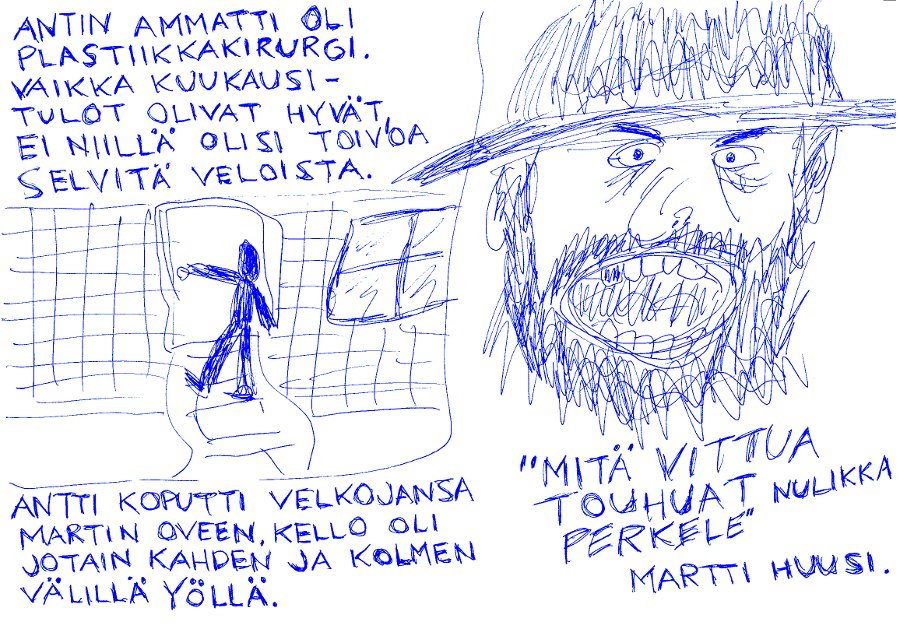 ANTIN AMMATTI OLI
PLASTIIKKAKIRURGI.
VAIKKA KUUKAUSI-
TULOT OLIVAT HYVÄT,
EI NIILLÄ OLISI TOIVOA
SELVITÄ VELOISTA.
ANTTI KOPUTTI VELKOJANSA
MARTIN OVEEN, KELLO OLI
JOTAIN KAHDEN JA KOLMEN
VÄLILLÄ YÖLLÄ.
"MITÄ VITTUA
TOUHUAT NULIKKA
PERKELE"
MARTTI HUUSI.